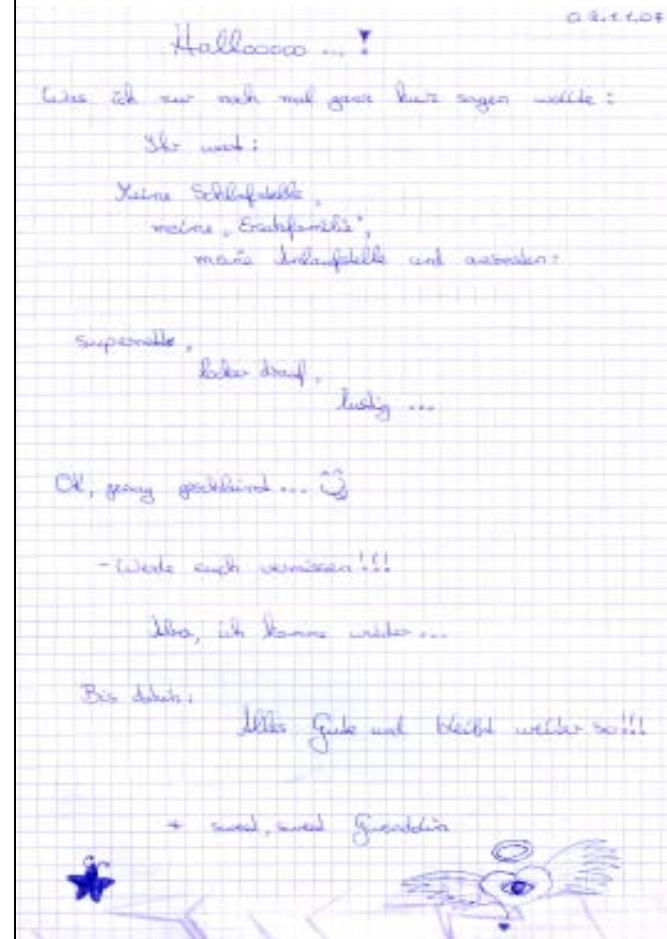 02.11.07
Hallooooo ... !
Was ich nur noch mal ganz kurz sagen wollte :
Ihr wart :
Meine Schlafstelle,
meine „Ersatzfamilie“,
meine Anlaufstelle und ansonsten:
supernette,
locker drauf,
lustig ...
OK, genug geschleimt ...
- Werde euch vermissen!!!
Aber, ich komme wieder ...
Bis dahin:
Alles Gute und bleibt weiter so!!!
Gwendolin